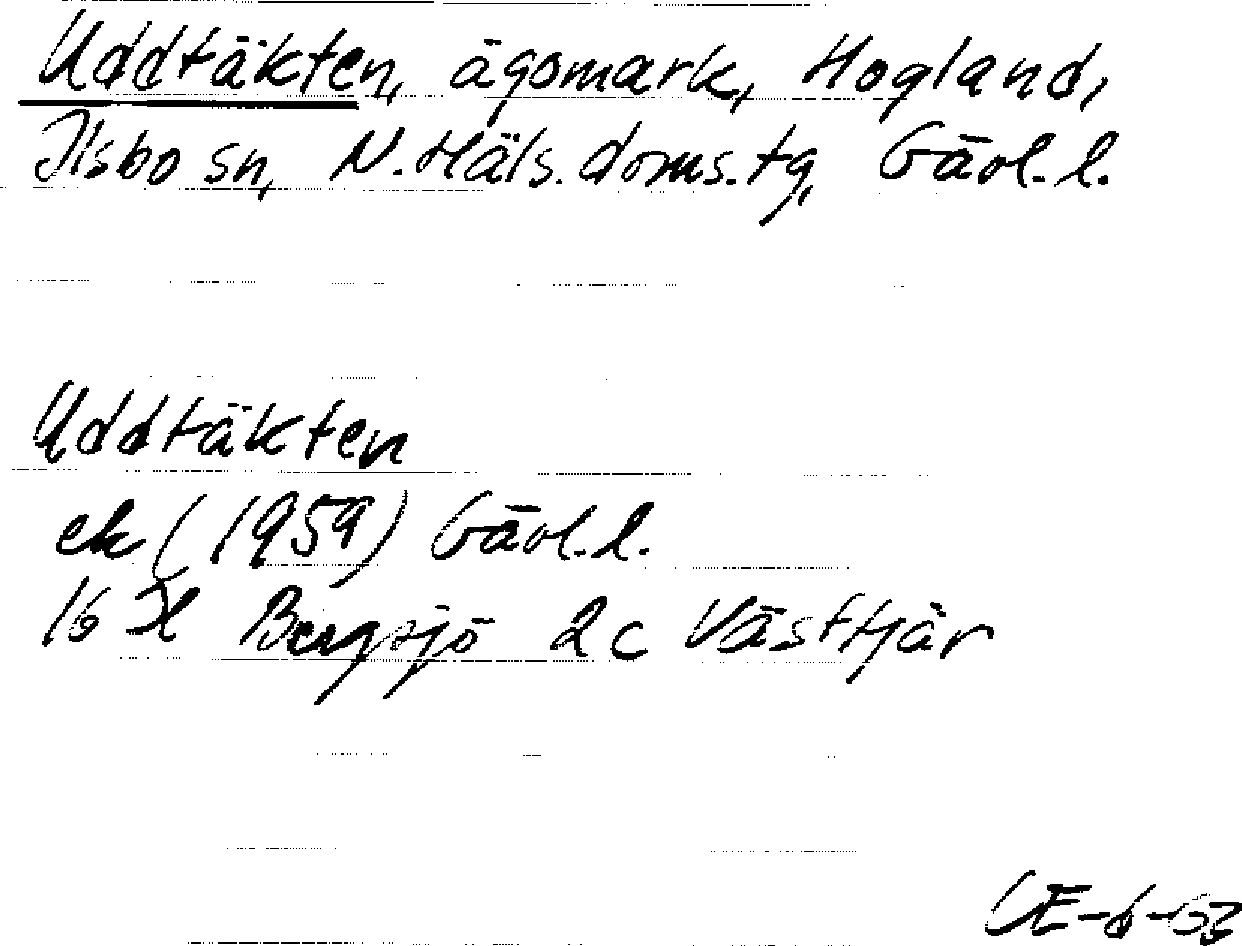 Uddtäkten, ägomark, Hogland,
Ilsbo sn, N. Häls. doms. tg, Gävl. l.
Uddtäkten
ek (1959) Gävl. l.
16 H Bergsjö 2c Västtjär